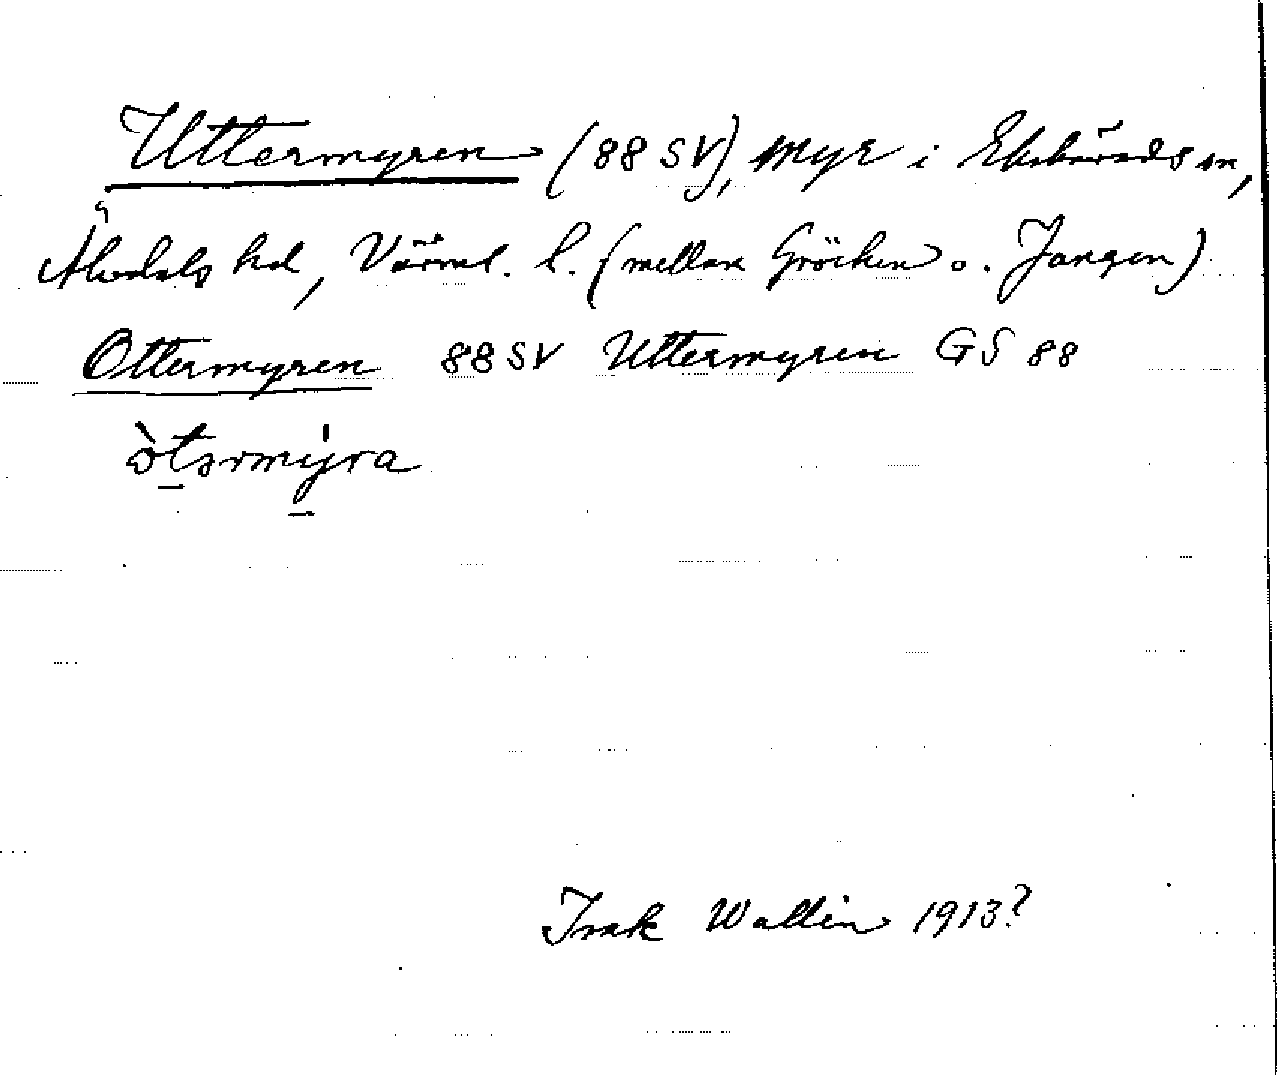 Uttermyren (88 SV), myr i Ekshärads sn,
Älvdals hd, Värml. l. (mellan Gröcken o. Jangen)
Ottermyren 88 SV Uttermyren GS 88
òtərmýra
Isak Wallin 1913?